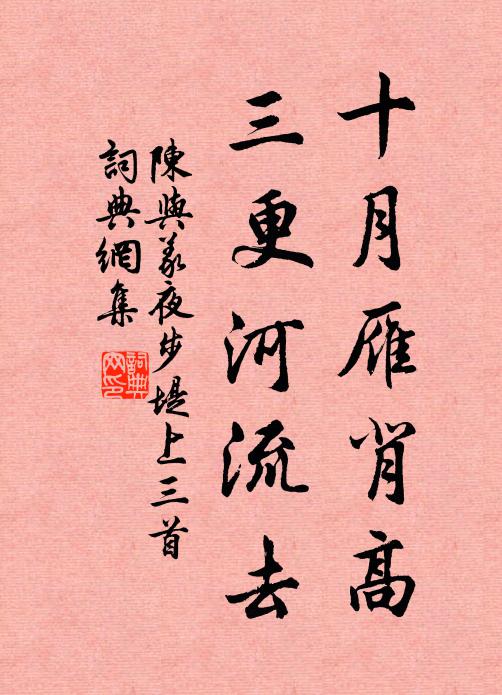 十月雁肖高
三更河流去
陳與義夜步堤上三首
詞典網集
詞典網印